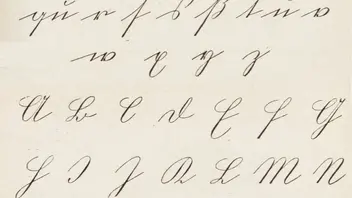 qu r ſ s ß t u v
w x y z
A B C D E F G
H I J K L M N